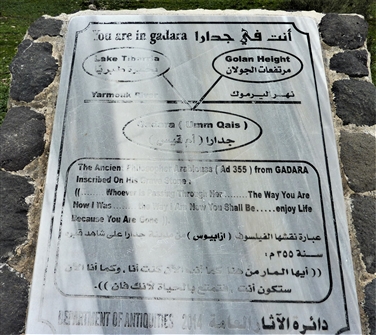 You are in gadara أنت في جدارا
Lake Tiberria
Golan Height
مرتفعات الجولان
Yarmouk
نهر اليرموك
Gadara ( Umm Qais )
جدارا ( أم قيس )
The Ancient Philosopher ( Ad 355 ) from GADARA
Inscribed On His Stone :
((...... Whoever Is Passing Through Her........The Way You Are
Now I Was Am Now You Shall Be.....enjoy Life
Because You Are Gone
عبارة نقشها الفيلسوف ( ارابيوس ) من مدينة جدارا على شاهد قبره
سنة ٣٥٥ م :
(( أيها المار من هنا كما أنت الآن كنت أنا , وكما أنا الآن
ستكون أنت فتمتع بالحياة لأنك فان )).
DEPARTMENT OF ANTIQUITIES 2014 دائرة الآثار العامة